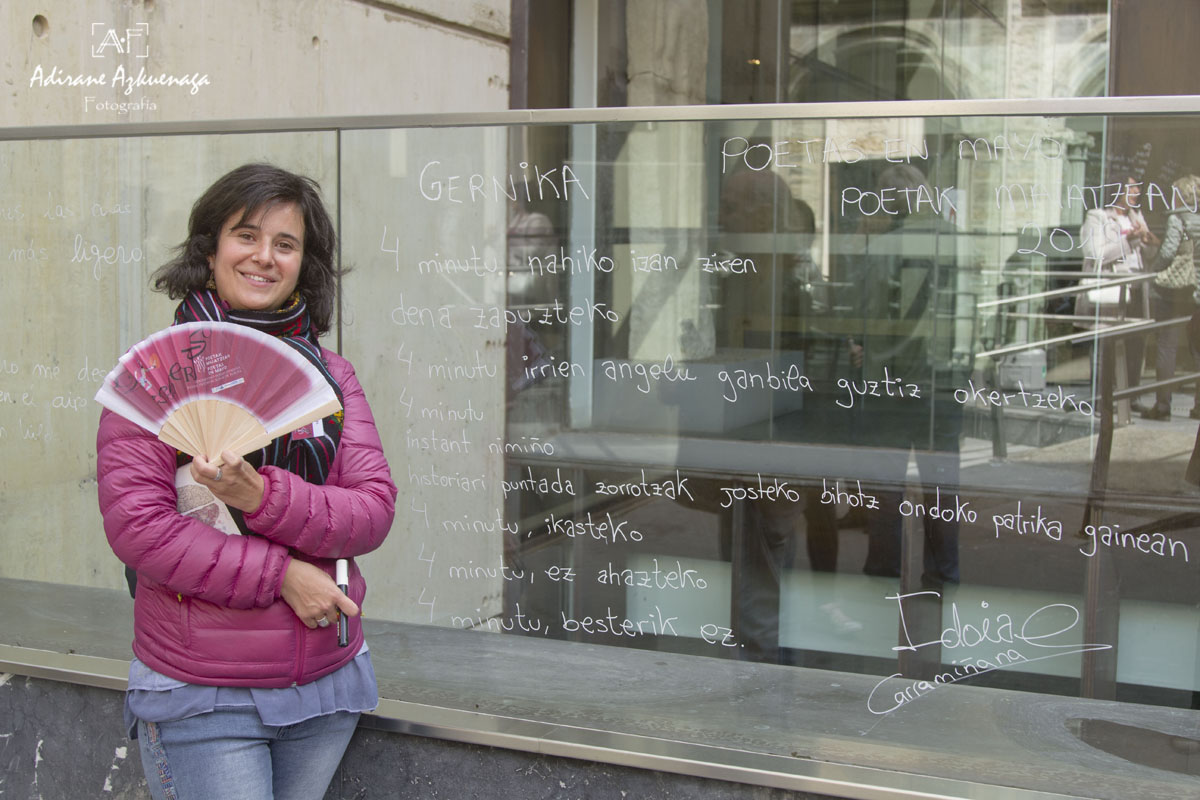 A.F
Adirane Azkuenaga
Fotografía
GERNIKA
POETAS EN MAYO
POETAK MAIATZEAN
4 minutu nahiko izan ziren
dena zapuzteko
4 minutu irrien angelu ganbila guztiz okertzeko
4 minutu
instant nimiño
historiari puntada zorrotzak josteko bihotz ondoko patrika gainean
4 minutu, ikasteko
4 minutu, ez ahazteko
4 minutu, besterik ez.
Idoia
Carramiñana
más ligero
POETAK
MAIATZEAN
POETAS
EN MAYO